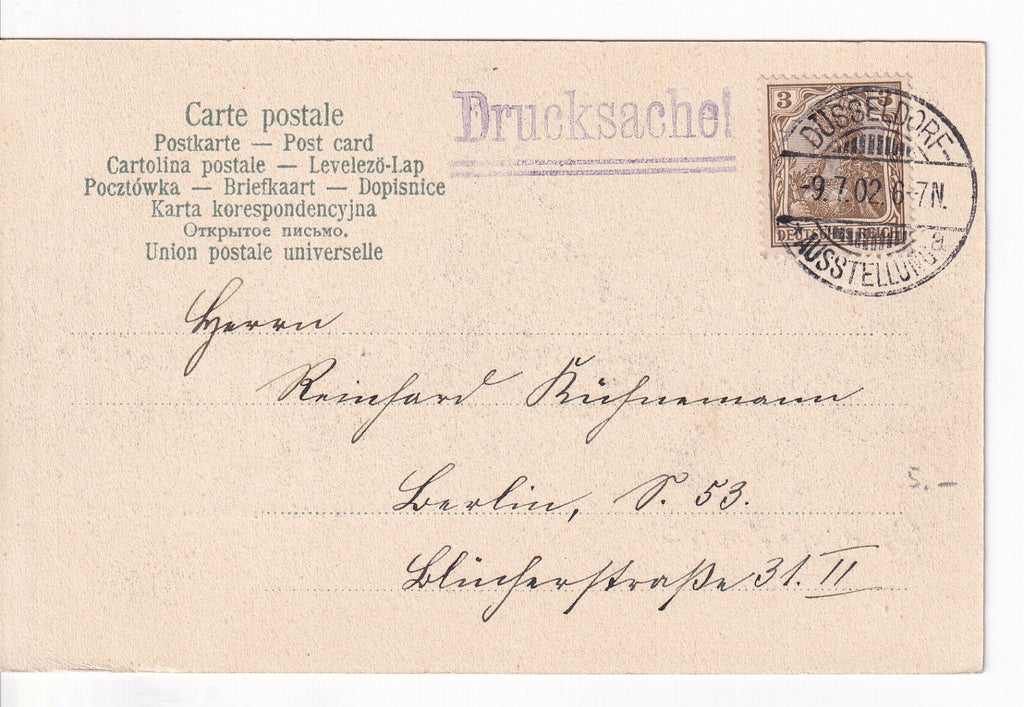 Carte postale
Postkarte — Post card
Cartolina postale — Levelező-Lap
Pocztówka — Briefkaart — Dopisnice
Karta korespondencyjna
Открытое письмо.
Union postale universelle
Drucksache!
3 3
DEUTSCHES REICH
DÜSSELDORF-
-9.7.02. 6-7N.
* AUSSTELLUNG a
Herrn
Reinhard Kühnemann
Berlin, S. 53.
Blücherstraße 31. II
5.-